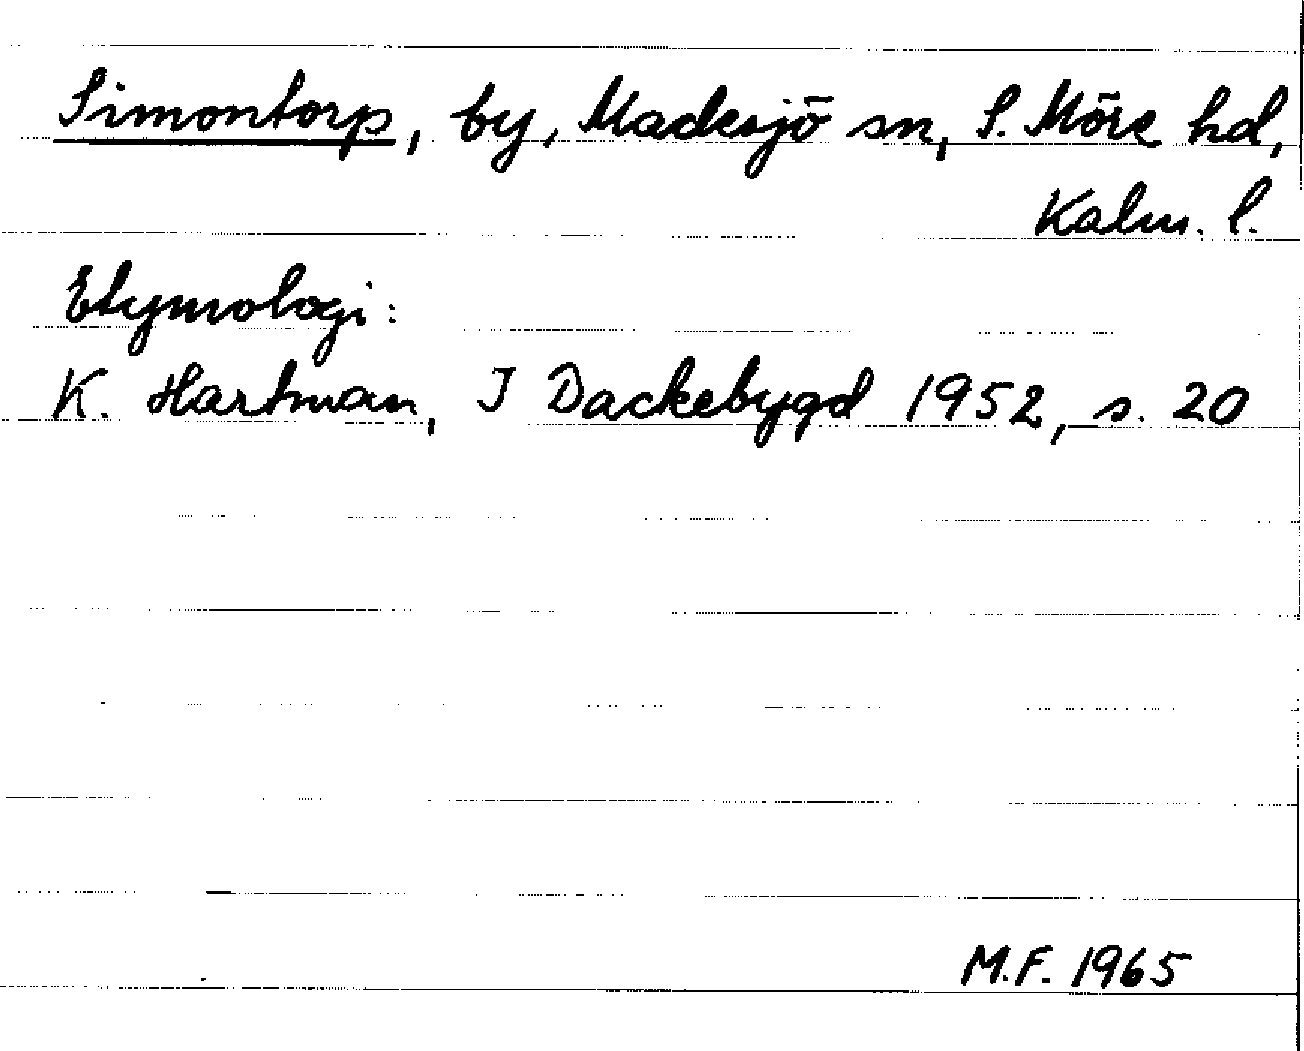 Simontorp, by, Madesjö sn, S. Möre hd,
Kalm. l.
Etymologi:
K. Hartman, I Dackebygd 1952, s. 20
M.F. 1965